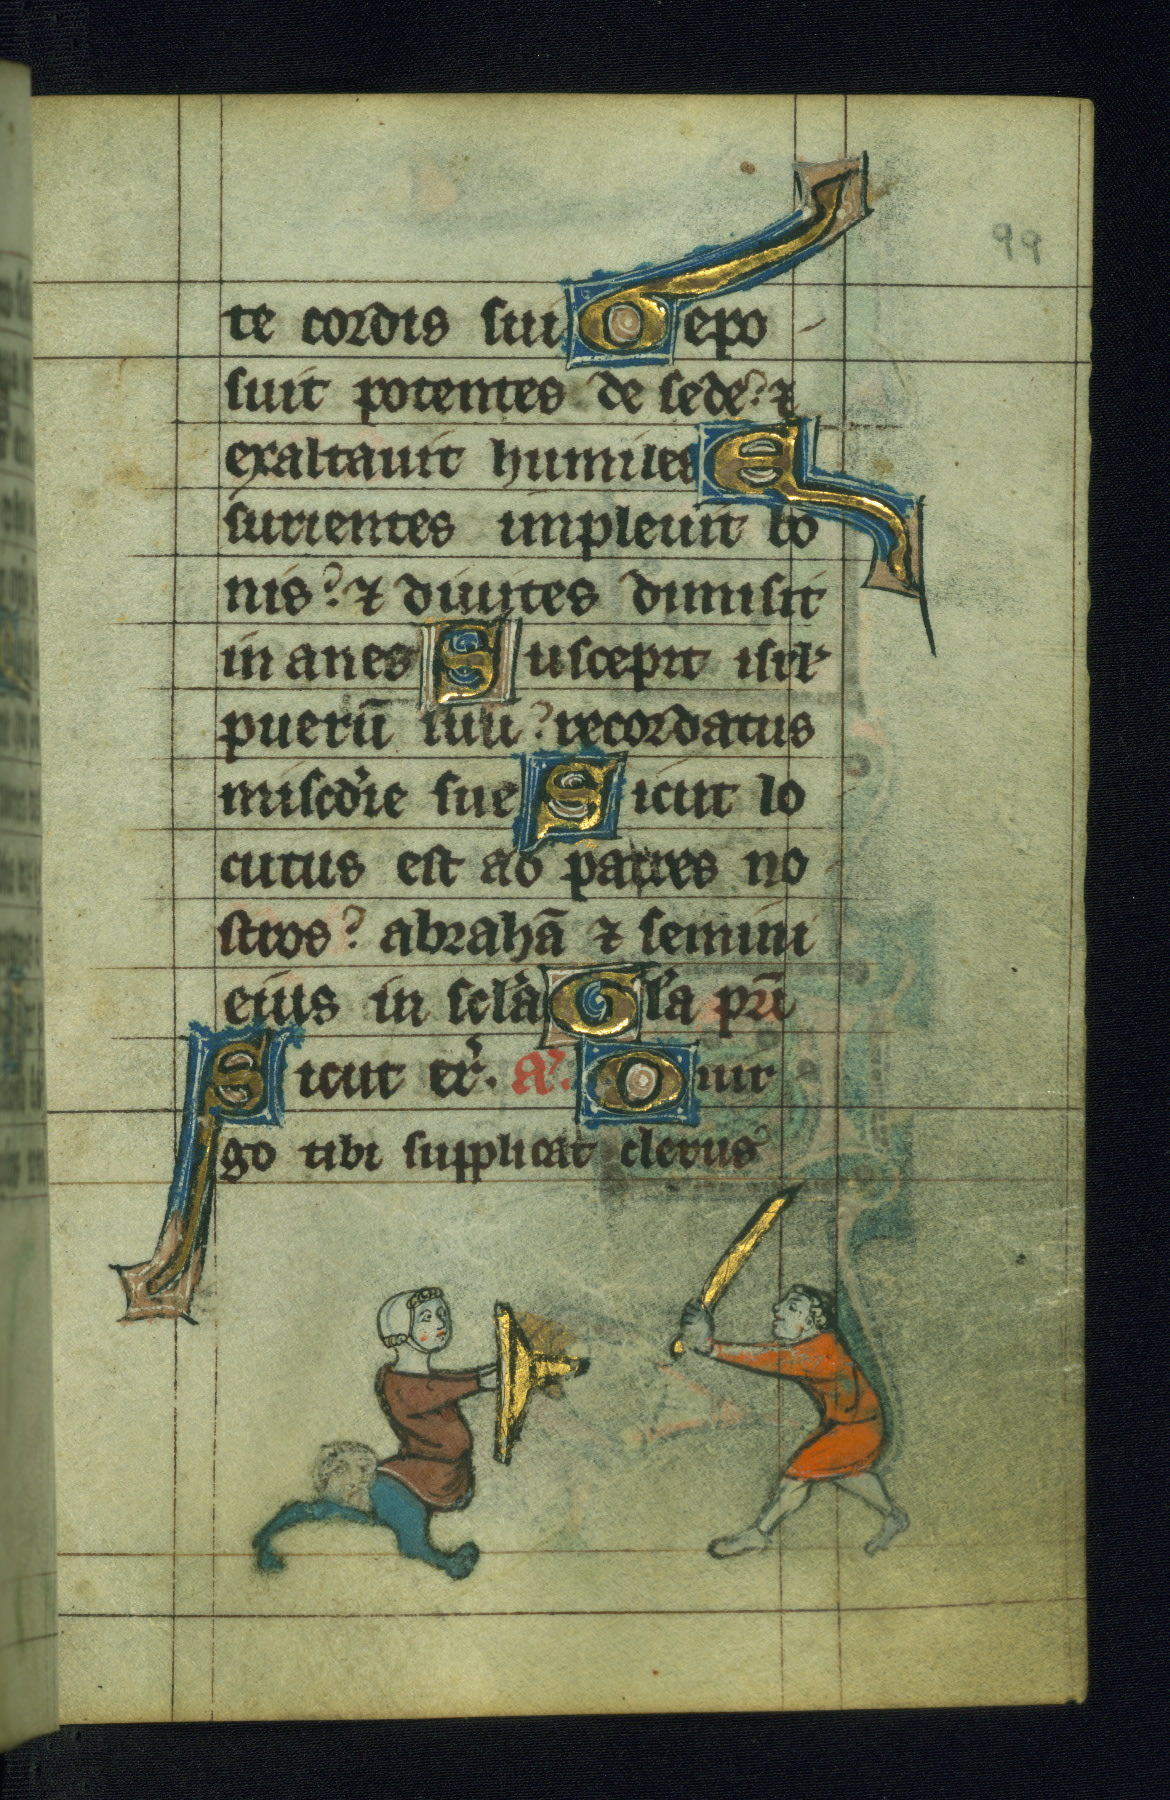 99
te cordis sui Depo
suit potentes de sede? ⁊
exaltauit humiles E
surientes impleuit bo
nis? ⁊ diuites dimisit
inanes Suscepit isrl᾽
puerū suū? recordatus
misc̄die sue Sicut lo
cutus est ad patres no
stros? abrahā ⁊ semini
eius in scl̄a Gl̄a prī
Sicut er̄. a᾽. O uir
go tibi supplicat clerus